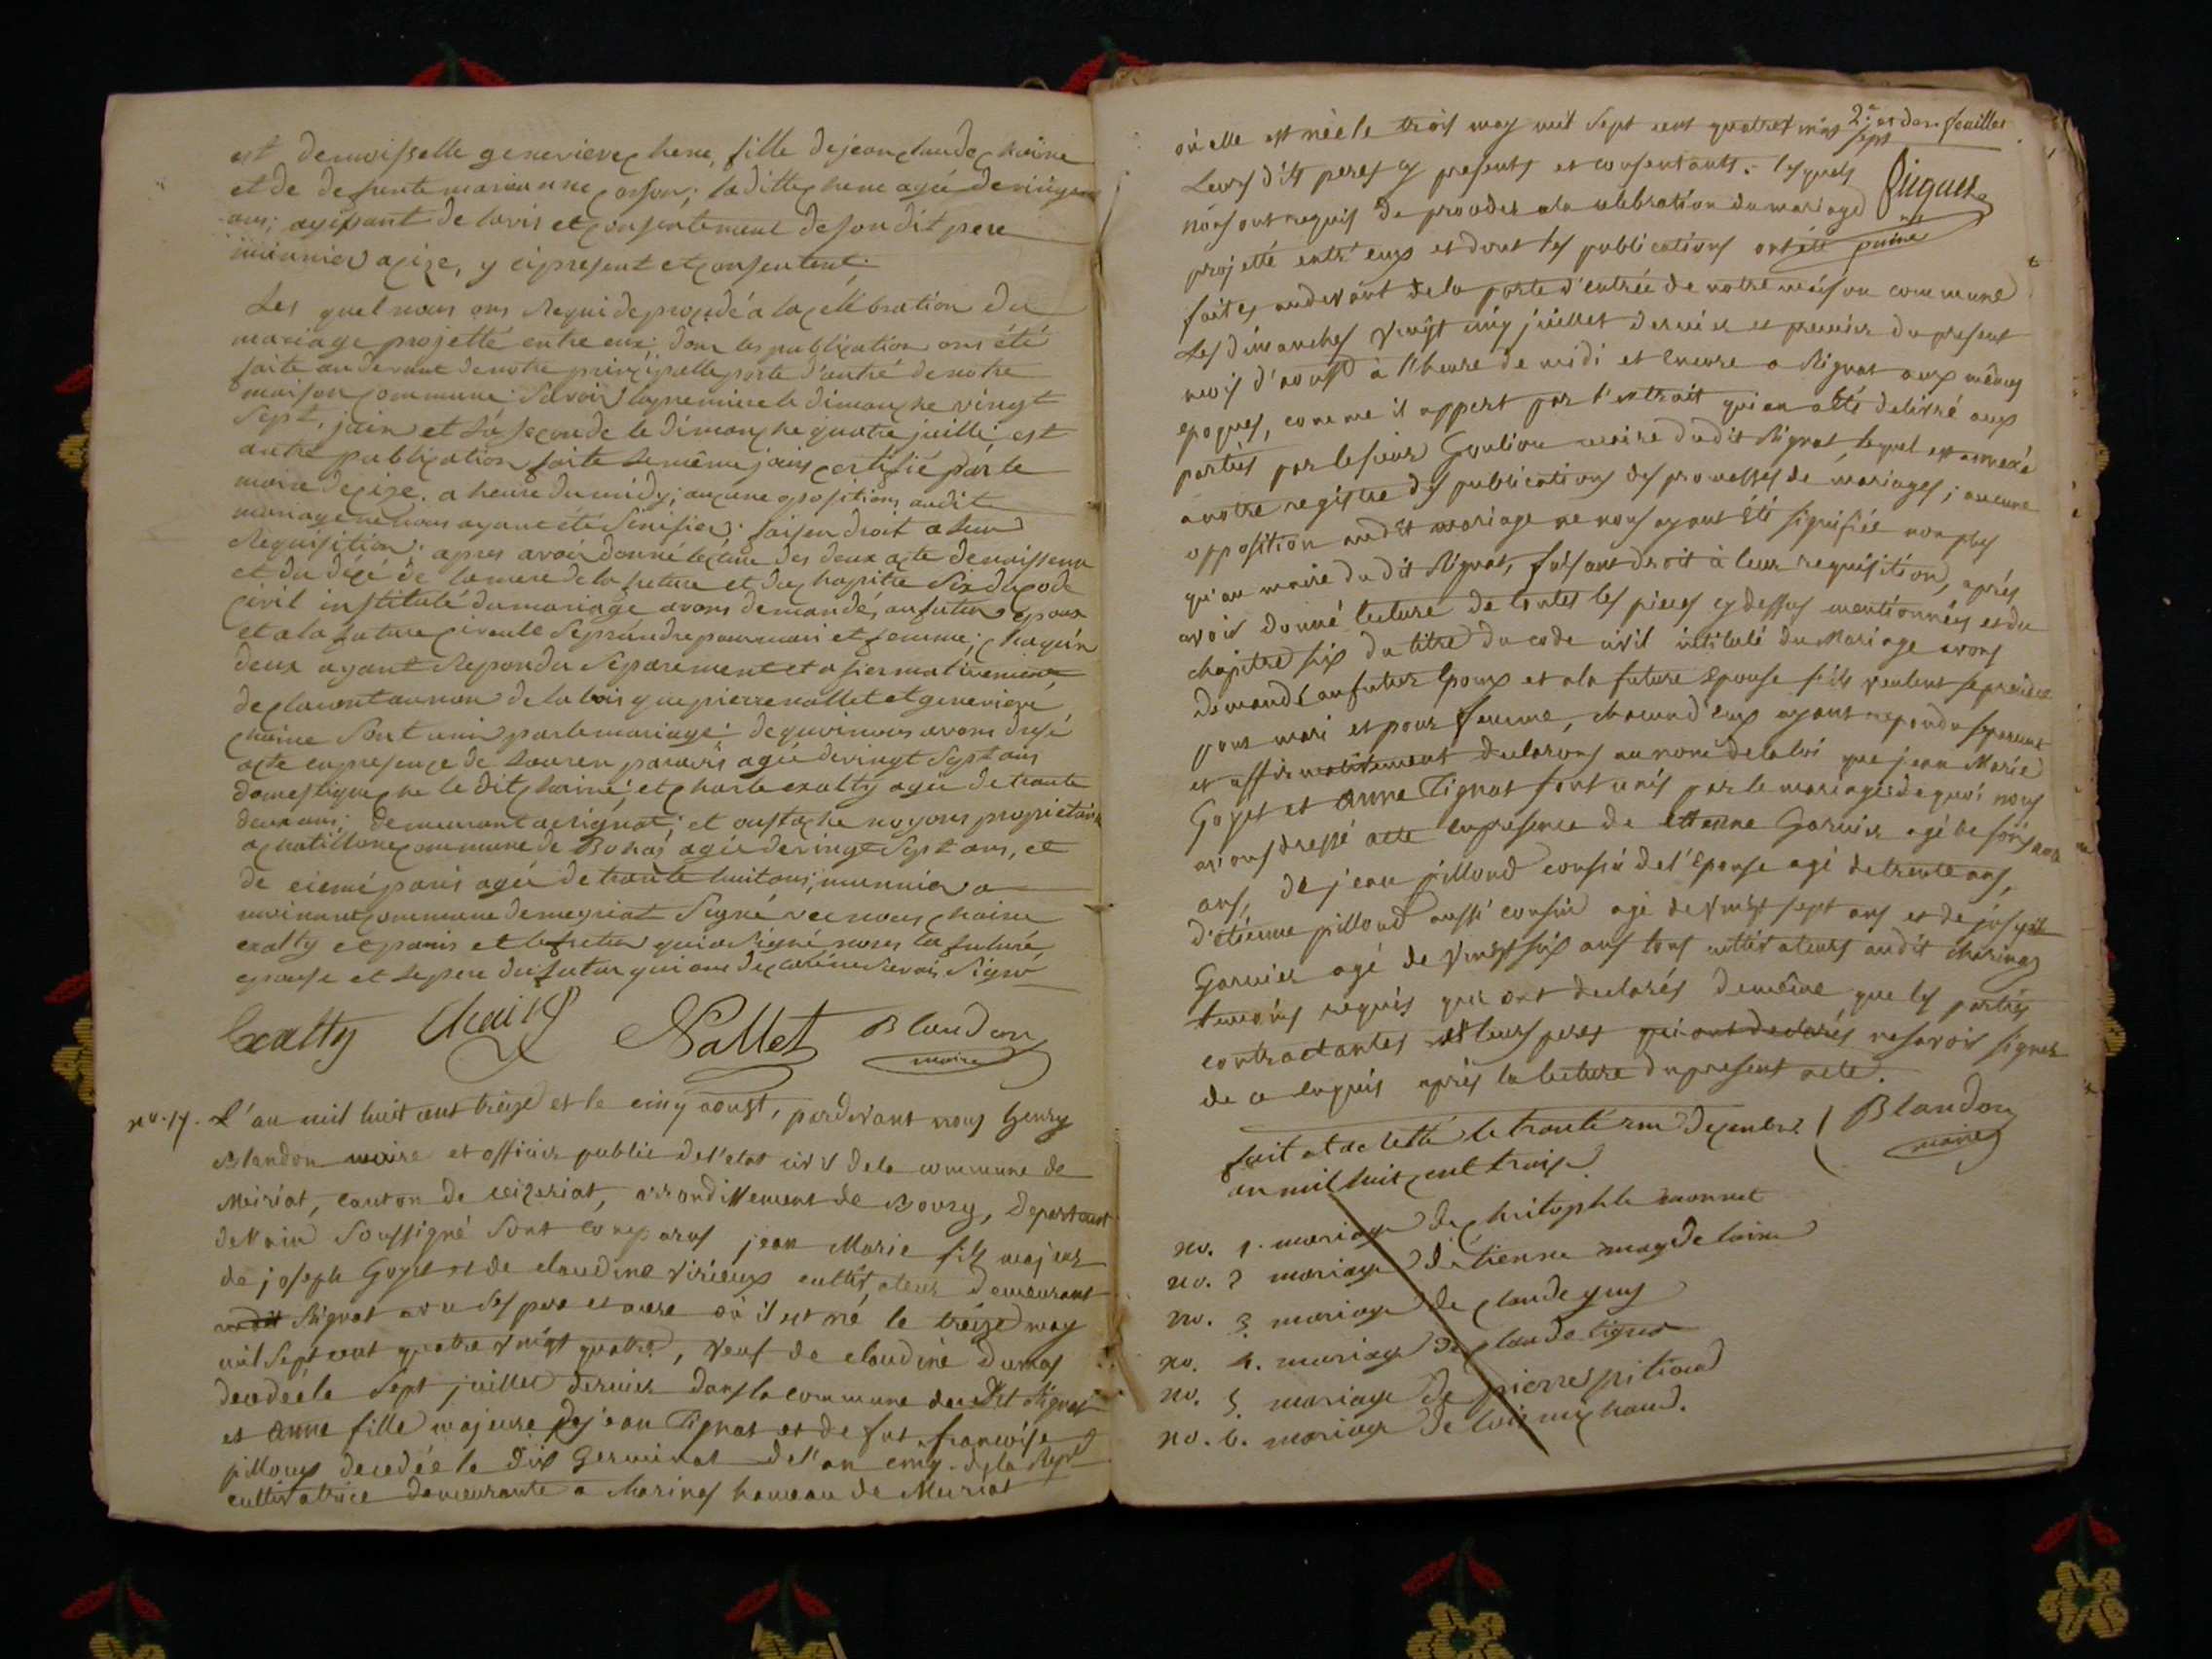 est demoisselle genevieve chene, fille de jean claude chaine
et de defunte marianne ; la ditte chene agée de
ans; agissant de lavis et consentement de son dit pere
meunier a cize, y ci present et consentent;
Les quel nous ons Requi de procede a la celébration du
mariage projetté entre eux; dont les publication ons été
faite au devant de notre principalle porte d'antré de notre
maison commune. Savoir la premiere le dimanche vingt
Sept, juin et la seconde le dimanche quatre juille, est
autre publication faite le même jour certifié par le
maire de cize. a heure du midy; aucune opositions audite
mariage ne nous ayant été Sinifier; faisen droit a leur
Requisition; apres avoir donné lecture des deux acte de naissence
et du décé de la mere de la future et du chapitre Six du code
Civil institulé du mariage avons demandé, au futur epoux
et a la future Si veule se prendre pour mari et femme; chaqu'un
deux ayant Repondu Séparement et afiermativement
declaront au nom de la lois que pierre nallet et genevieve
chaine Sont unis par le mariage de quoi nous avons dresé
acte en presence de Lauren agée de vingt Sept ans
domestique che le dit chaine; et charle exalty agée de trante
deux ans; demeurant a rignat; et oustache noyons propriétaire
a chatillone commune de Bohas agée de vingt Sept ans, et
de paris agée de trante huit ans; meunnier a
commune de meyriat Signé vec nous chaine
exalty et paris et le futur qui a Signé nons la future
epouse et le pere du futur qui ons declaré ne Savoir Signé
Exalty Chaine Nallet Blandon
maire
no. 17. L'an mil huit cent treize et le cinq aoust, pardevant nous henry
Blandon maire et officier public de l'etat civil de la commune de
Meiriat, canton de ceizeriat, arrondissement de Bourg, Departement
de l'ain Soussigné Sont comparus jean Marie fils majeur
de joseph Goyet et de claudine Virieux cultivateur demeurant
audit Rignat avec Ses pere et mere où il est né le treize may
mil Sept cent quatre vingt quatre, veuf de claudine dumas
decedée le Sept juillet dernier dans la commune du dit Rignat
et Anne fille majeure de jean Tignat et de fut francoise
pilloux decedée le dix Germinal de l'an cinq de la Repe
cultivatrice demeurante a charinas hameau de Meiriat
2e et der. feuillet
où elle est née le trois may mil Sept cent quatre vingt sept
Leurs d'its peres cy presents et consentants. lesquels
nous ont requis de proceder a la celebration du mariage
projetté entr'eux et dont les publications ont été
faites audevant de la porte d'entrée de notre maison commune
Les dimanches vingt cinq juillet dernier et premier du present
mois d'aoust à l'heure de midi et encore a Rignat aux mêmes
epoques, comme il appert par l'extrait qui en a été delivré aux
parties par le sieur Goulion maire du dit Rignat, lequel est annexé
a notre registre des publications des promesses de mariages; aucune
opposition audit mariage ne nous ayant été signifiée non plus
qu'au maire du dit Rignat, faisant droit à leur requisition, aprés
avoir donné lecture de toutes les pieces cy dessus mentionnées et du
chapitre six du titre du code civil intitulé du Mariage avons
demandé au futur Epoux et a la future Epouse s'ils veulent se prendre
pour mari et pour femme, chacun d'eux ayant repondu separement
et affirmativement declarons au nom de la loi que jean Marie
Goyet et Anne Tignat sont unis par le mariage; de quoi nous
avons dressé acte en presence de ettienne Garnier agé de soixante
ans, de jean pilloud cousin de l'Epouse agé de trente ans,
d'etienne pilloud aussi cousin agé de vingt sept ans et de joseph
Garnier agé de vingt six ans tous cultivateurs audit charinas
temoins requis qui ont declarés de même que les parties
contractantes et leurs peres qui ont declarés ne savoir signer
de ce enquis après la lecture du present acte.
Blandon
maire
fait et le trante un decembre
an mil huit cent traise
no. 1. mariage de chritophle monnet
no. 2 mariage d'étienne magdelaine
no. 3. mariage de claude
no. 4. mariage de claude tignat
no. 5. mariage de pierre pitioud
no. 6. mariage de lois michaud.